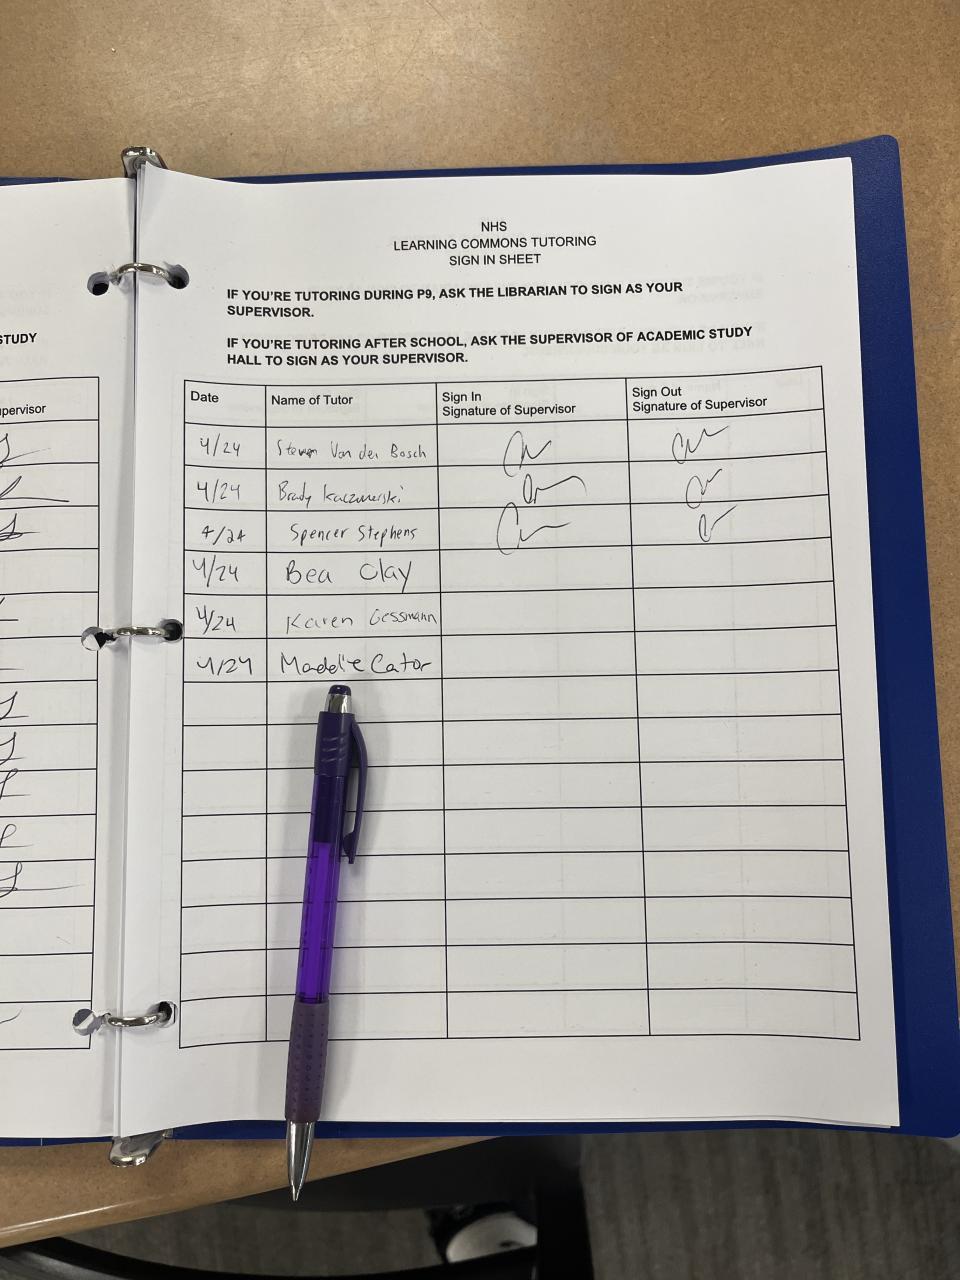 NHS
LEARNING COMMONS TUTORING
SIGN IN SHEET
IF YOU'RE TUTORING DURING P9, ASK THE LIBRARIAN TO SIGN AS YOUR
SUPERVISOR.
IF YOU'RE TUTORING AFTER SCHOOL, ASK THE SUPERVISOR OF ACADEMIC STUDY
HALL TO SIGN AS YOUR SUPERVISOR.
STUDY
Date Name of Tutor Sign In Sign Out
Signature of Supervisor Signature of Supervisor
4/24 Steven Van den Bosch
4/24 Brady Kaczmerski
4/24 Spencer Stephens
4/24 Bea Clay
4/24 Karen Gessmann
4/24 Maddie Cator